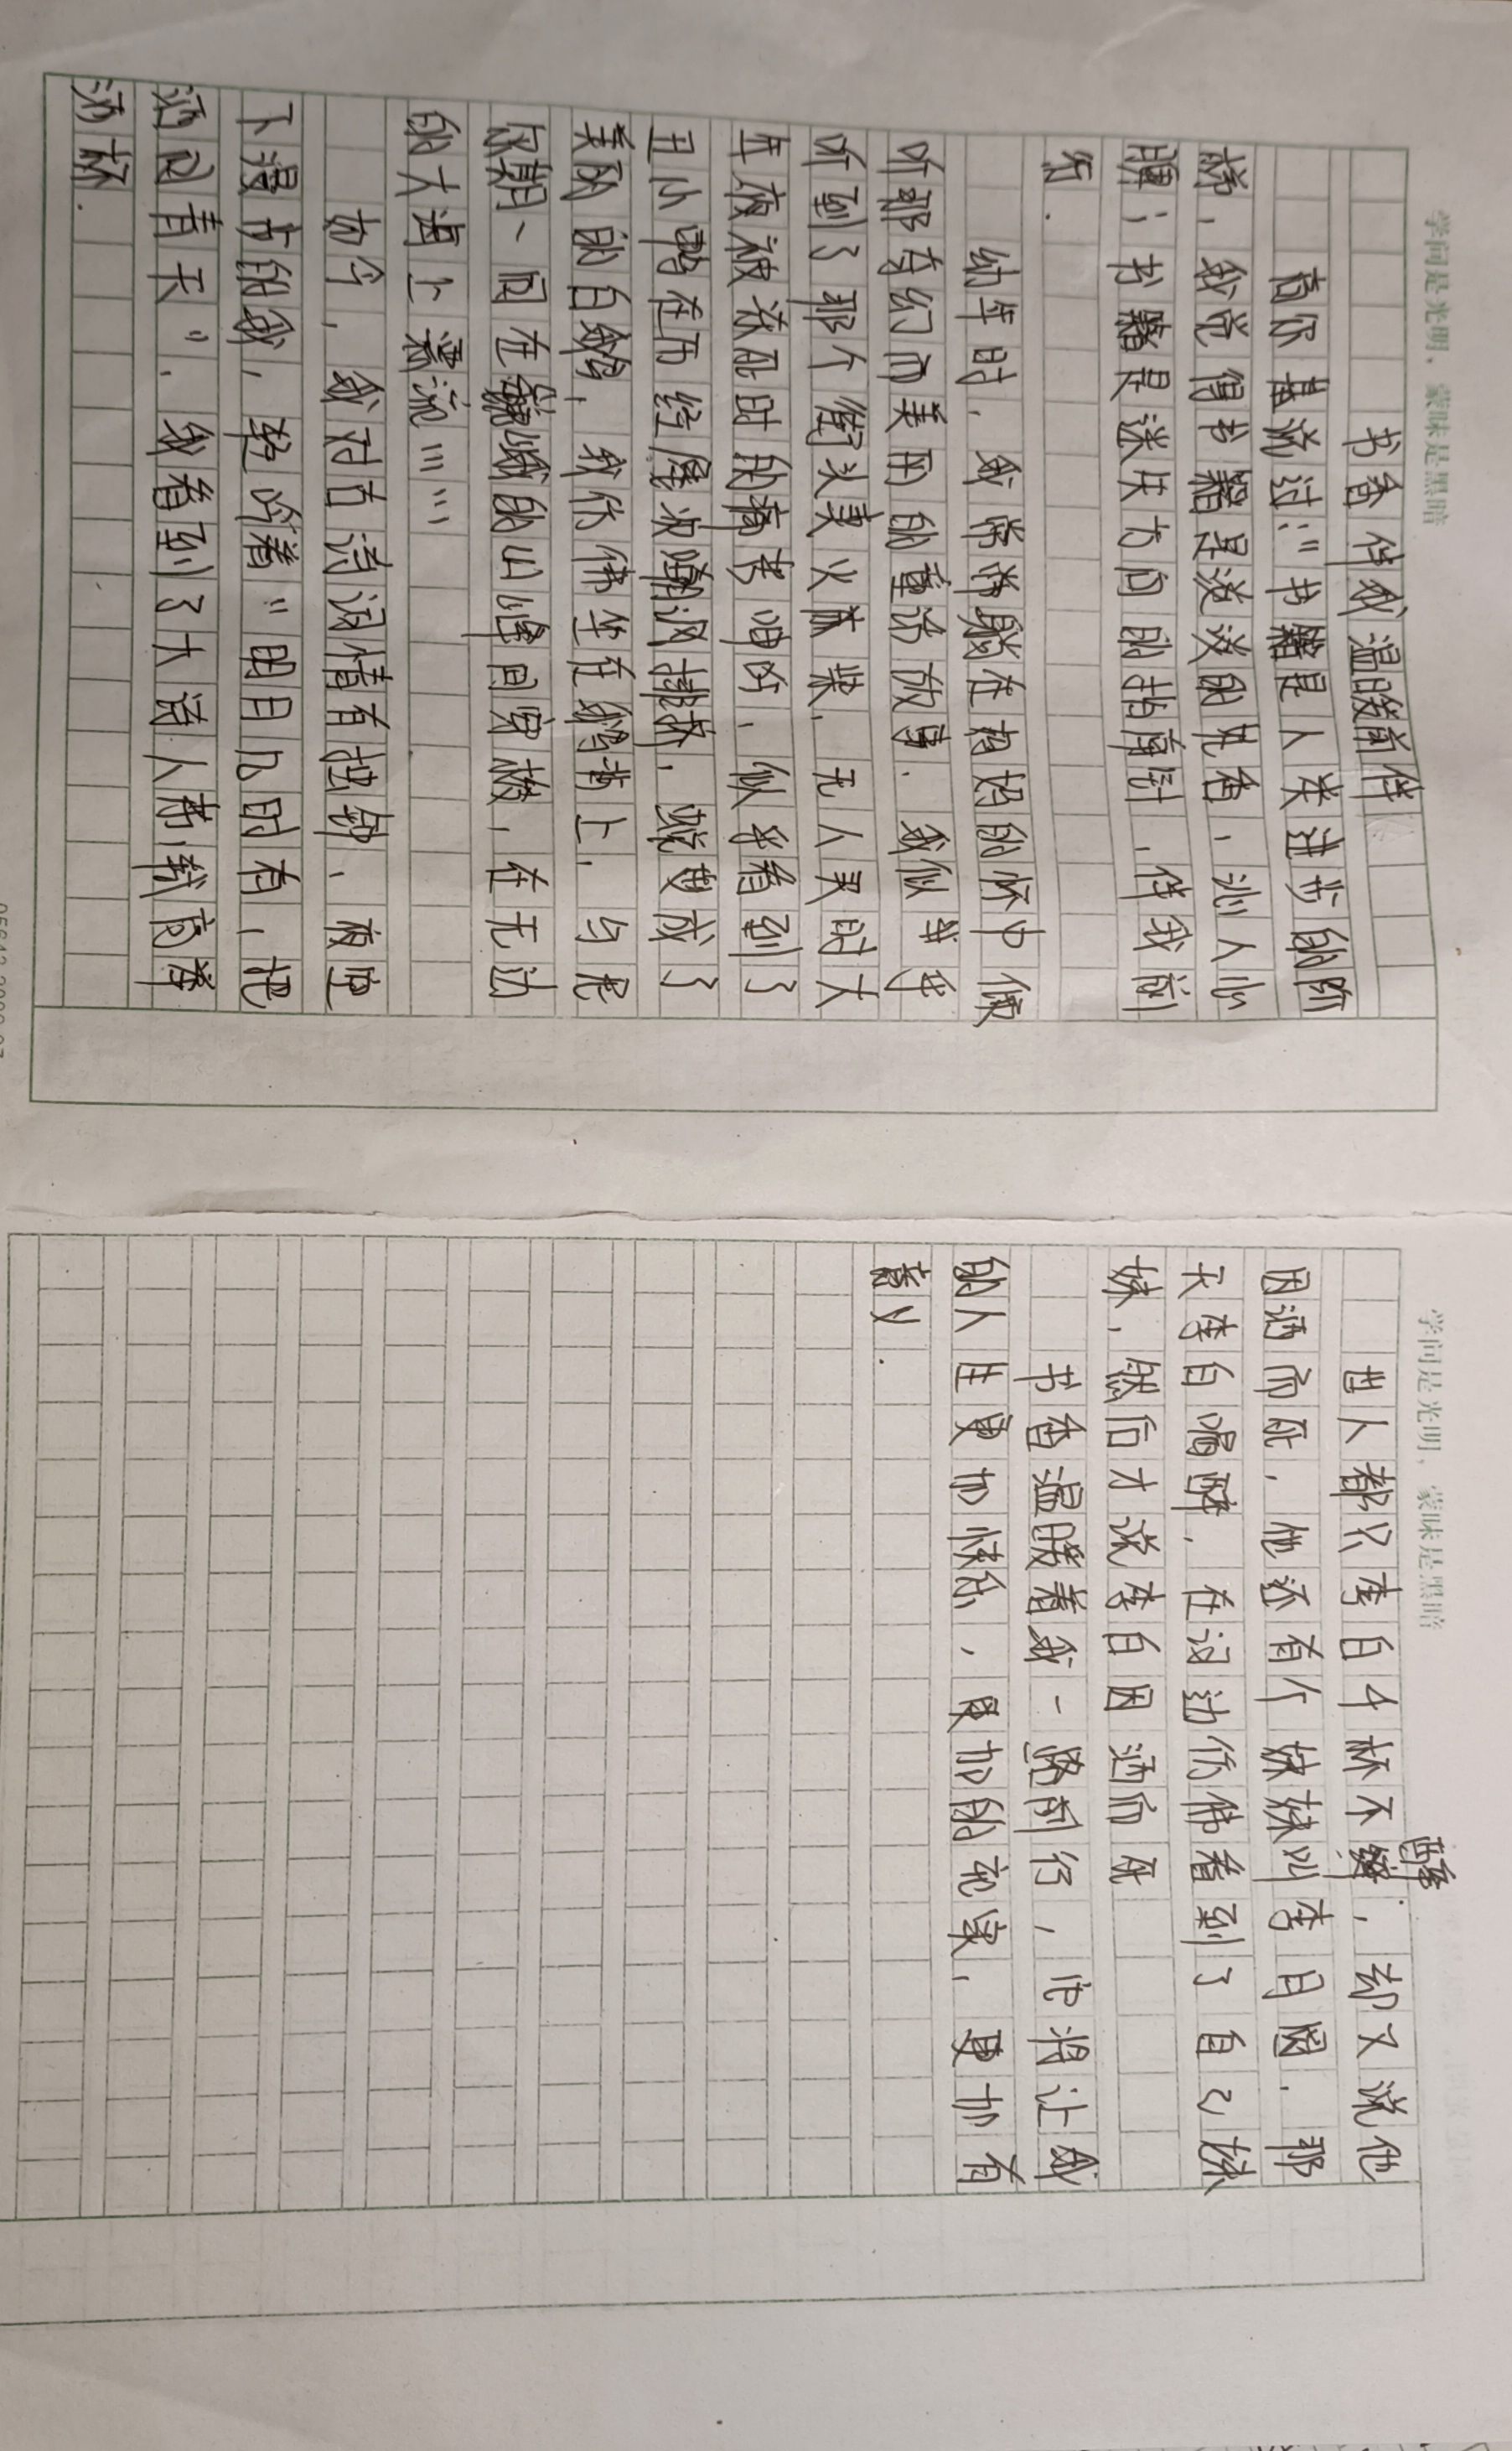 学问是光明，蒙昧是黑暗
书香伴我温暖前伴
高尔基说过："书籍是人类进步的阶
梯，我觉得书籍是淡淡的兄香，沁人心
脾；书籍是迷失方向的指南针，伴我前
行.
幼年时，我常常躺在妈妈的怀中倾
听那奇幻而美丽的童话故事.我似乎
听到了那个街头卖火柴，无人买时大
年夜被冻死时的痛苦呻吟，似乎看到了
丑小鸭在历经屋次嘲讽排挤，蜕变成了
美丽的白鹅，我仿佛坐在鹅背上，与尼
尔期、一同在巍峨的山峰间穿梭，在无边
的大海上漂流……
如今，我对古诗词情有独钟，夜空
下漫步的我，轻吟着"明月几时有，把
酒问青天".我看到了大诗人苏轼高举
酒杯.
学问是光明，蒙昧是黑暗
世人都只李白千杯不醉，却又说他
因酒而死，他还有个妹妹叫李月圆.那
天李白喝醉，在河边仿佛看到了自己妹
妹，然后才说李白因酒而死
书香温暖着我一路前行，它将让我
的人生更加快乐，更加的充实，更加有
意义.